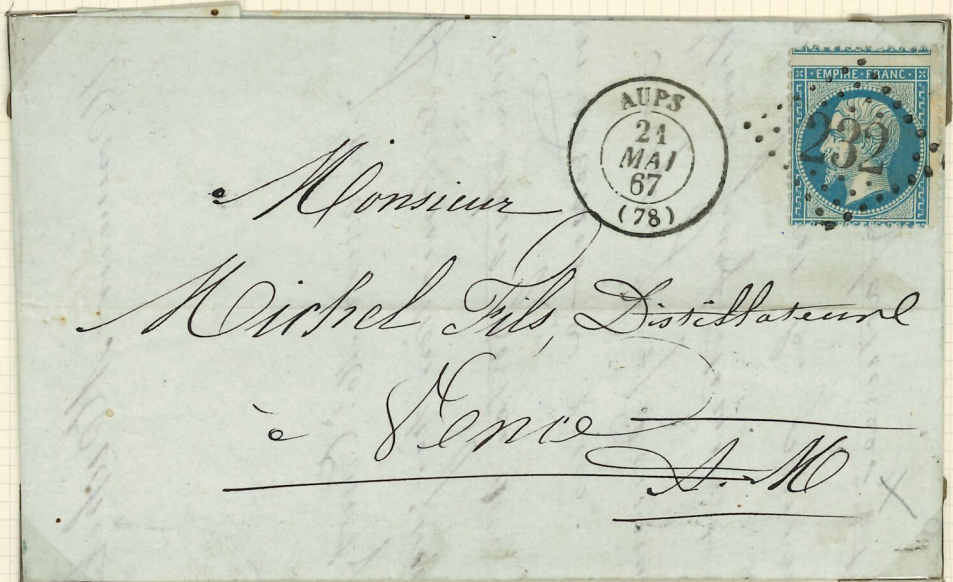 AUPS
21
MAI
67
(78)
EMPIRE FRANC
232
Monsieur
Michel Fils, Distillateur
à Vence
A. M